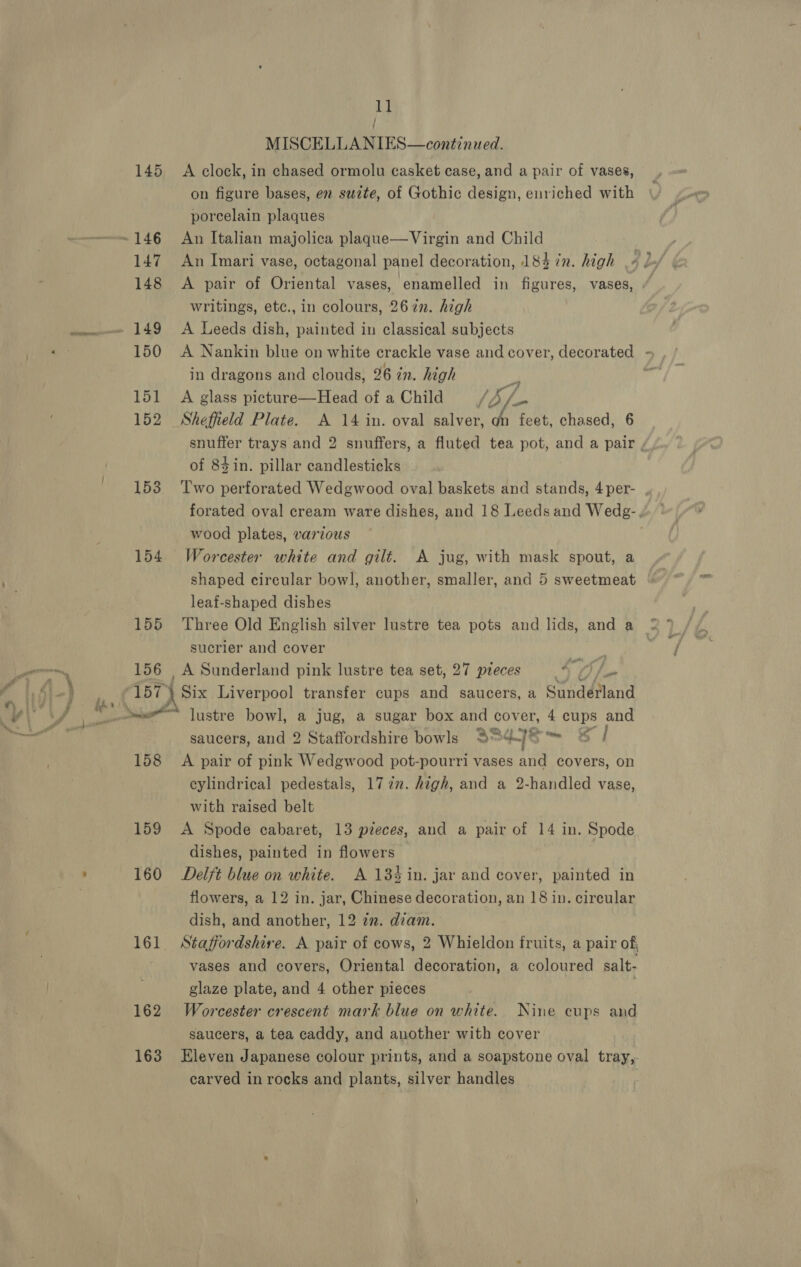 11
MISCELLANIES—continued.
145 A clock, in chased ormolu casket case, and a pair of vases,
on figure bases, en suite, of Gothic design, enriched with
porcelain plaques
146 An Italian majolica plaque—Virgin and Child
147 An Imari vase, octagonal panel decoration, 18½ in. high
148 A pair of Oriental vases, enamelled in figures, vases,
writings, etc., in colours, 26 in. high
149 A Leeds dish, painted in classical subjects
150 A Nankin blue on white crackle vase and cover, decorated
in dragons and clouds, 26 in. high
151 A glass picture—Head of a Child 15/-
152 Sheffield Plate. A 14 in. oval salver, on feet, chased, 6
snuffer trays and 2 snuffers, a fluted tea pot, and a pair
of 8½ in. pillar candlesticks
153 Two perforated Wedgwood oval baskets and stands, 4 per-
forated oval cream ware dishes, and 18 Leeds and Wedg-
wood plates, various
154 Worcester white and gilt. A jug, with mask spout, a
shaped circular bowl, another, smaller, and 5 sweetmeat
leaf-shaped dishes
155 Three Old English silver lustre tea pots and lids, and a
sucrier and cover
156 A Sunderland pink lustre tea set, 27 pieces
157 Six Liverpool transfer cups and saucers, a Sunderland
lustre bowl, a jug, a sugar box and cover, 4 cups and
saucers, and 2 Staffordshire bowls
158 A pair of pink Wedgwood pot-pourri vases and covers, on
cylindrical pedestals, 17 in. high, and a 2-handled vase,
with raised belt
159 A Spode cabaret, 13 pieces, and a pair of 14 in. Spode
dishes, painted in flowers
160 Delft blue on white. A 13½ in. jar and cover, painted in
flowers, a 12 in. jar, Chinese decoration, an 18 in. circular
dish, and another, 12 in. diam.
161 Staffordshire. A pair of cows, 2 Whieldon fruits, a pair of
vases and covers, Oriental decoration, a coloured salt-
glaze plate, and 4 other pieces
162 Worcester crescent mark blue on white. Nine cups and
saucers, a tea caddy, and another with cover
163 Eleven Japanese colour prints, and a soapstone oval tray,
carved in rocks and plants, silver handles